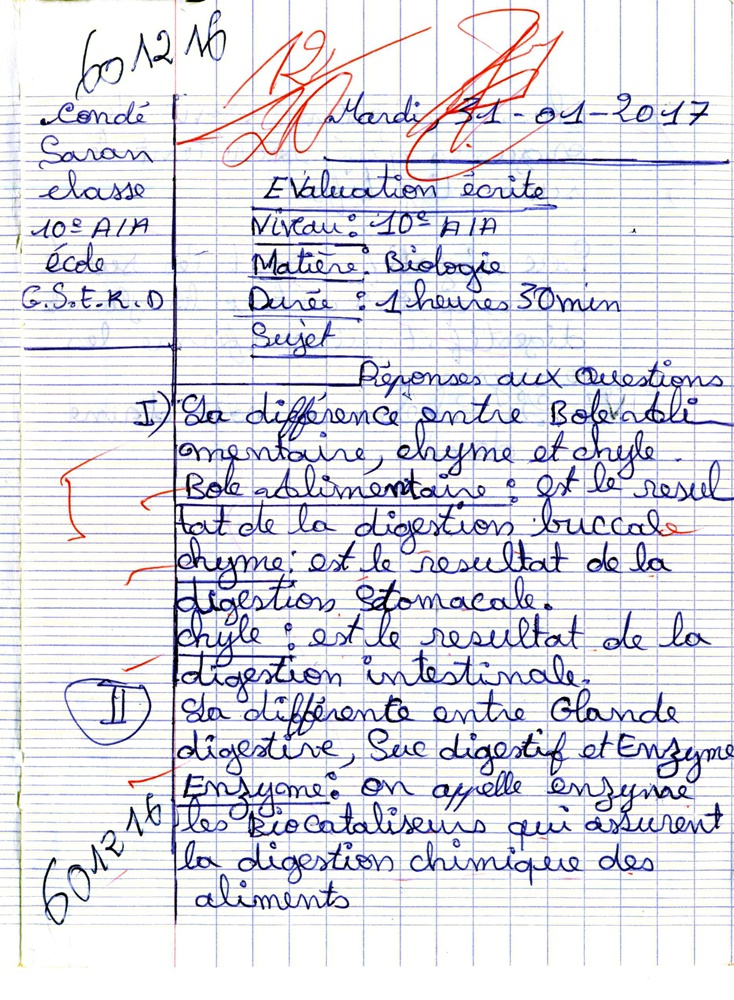 601216
12/20
Mardi, 31-01-2017
Condé
Saran
classe
10e A/A
école
G.S.E.R.D
Evaluation écrite
Niveau : 10e A/A
Matière : Biologie
Durée : 1 heures 30min
Sujet
Réponses aux Questions
I) La différence entre Bole Ali
mentaire, chyme et chyle.
Bole Alimentaire : est le resul
tat de la digestion buccale
chyme : est le resultat de la
digestion Stomacale.
chyle : est le resultat de la
digestion intestinale.
II La différente entre Glande
digestive, Suc digestif et Enzyme
Enzyme : on appelle enzyme
les Biocataliseurs qui assurent
la digestion chimique des
aliments
601216